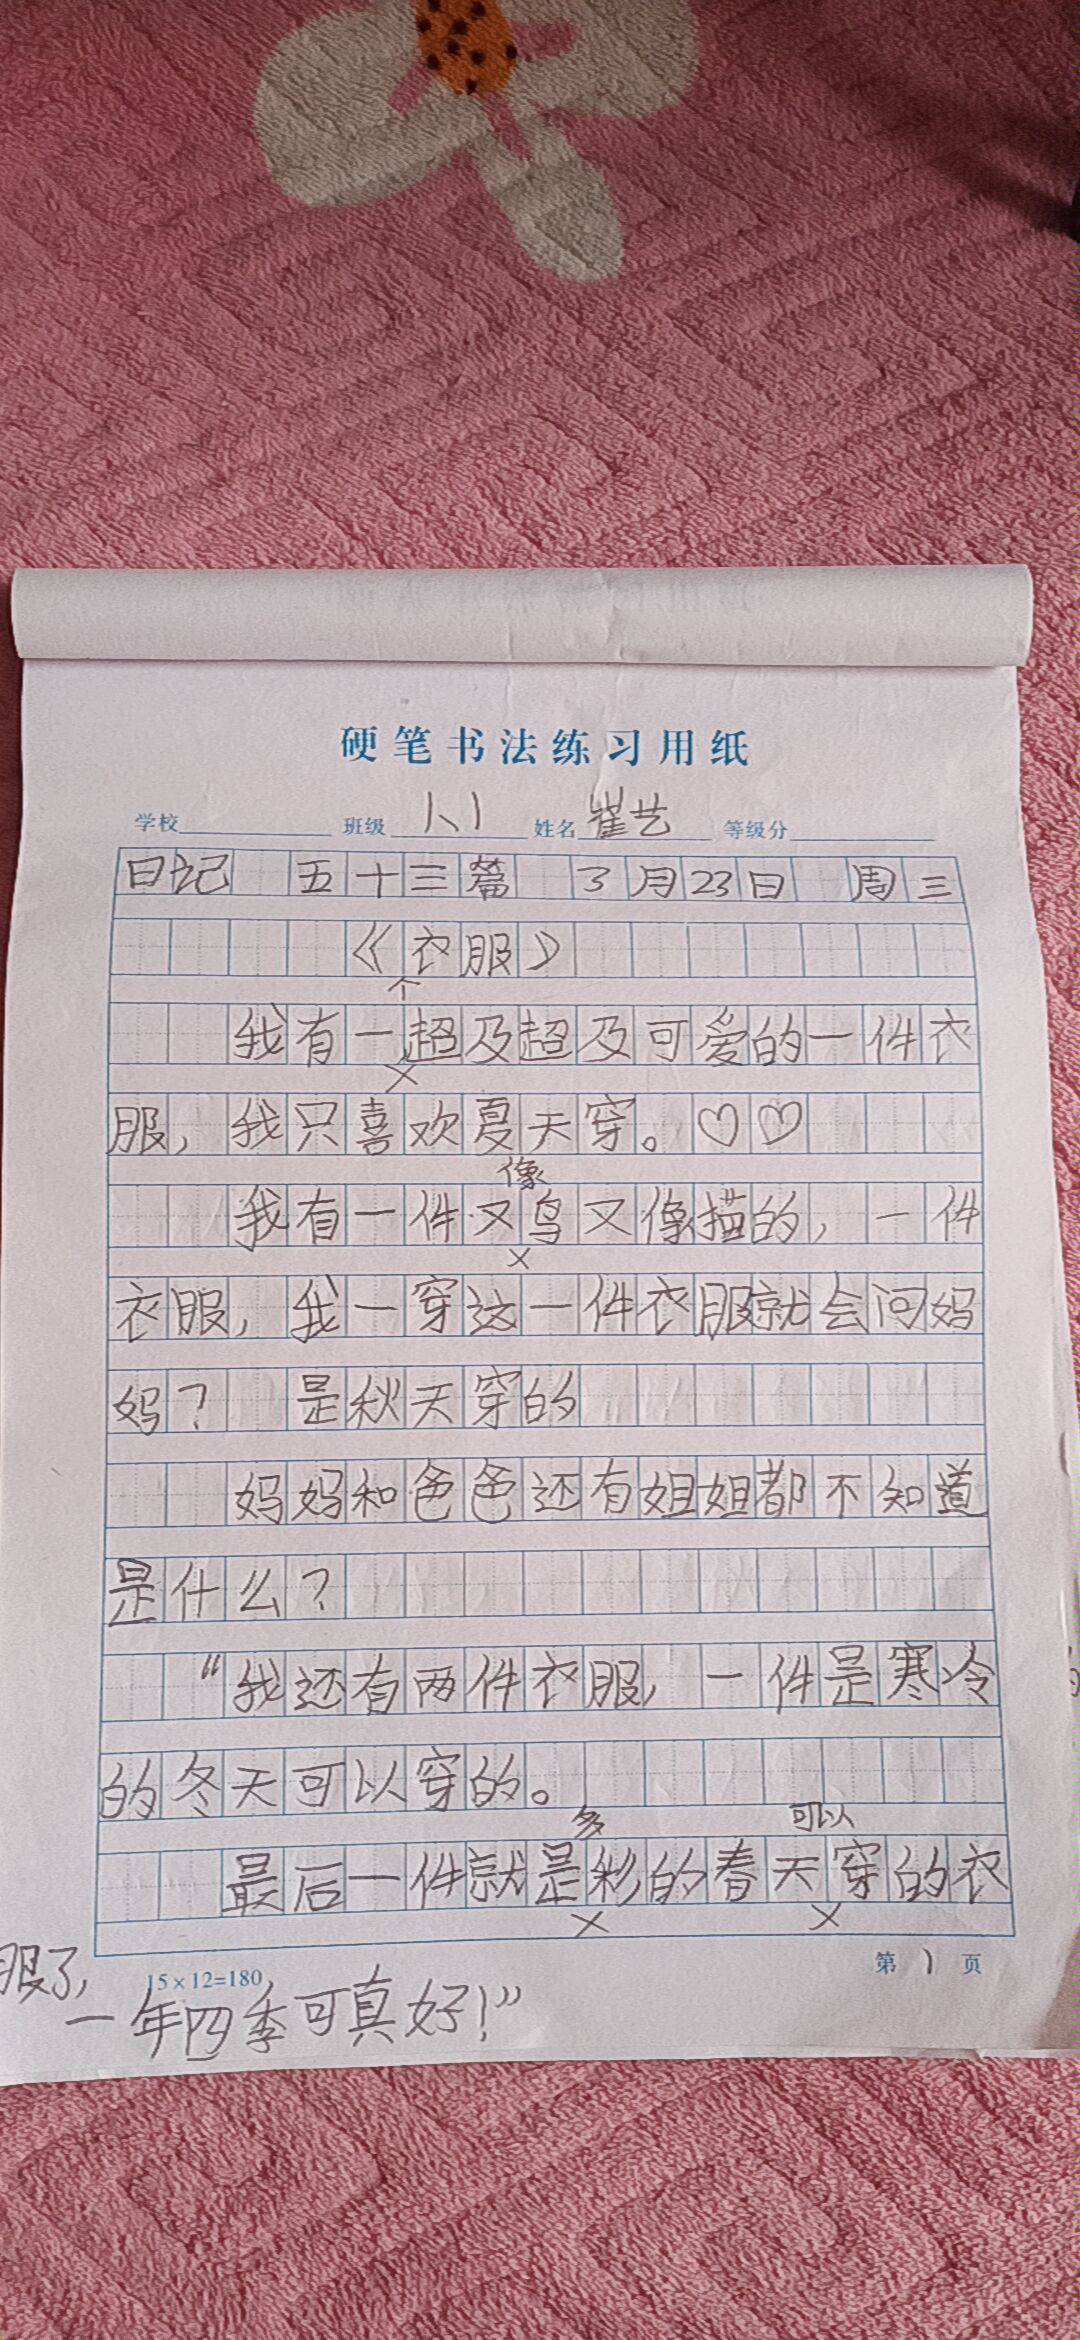 硬笔书法练习用纸
学校 班级 1、1 姓名 崔艺 等级分
日记 五十三篇 3月23日 周三
《衣服》
个
我有一超及超及可爱的一件衣
×
服，我只喜欢夏天穿。♡♡
像
我有一件又鸟又像描的，一件
×
衣服，我一穿这一件衣服就会问妈
妈？ 是秋天穿的
妈妈和爸爸还有姐姐都不知道
是什么？
“我还有两件衣服，一件是寒冷
的冬天可以穿的。
多 可以
最后一件就是彩的春天穿的衣
× ×
服了， 15×12=180 第 1 页
一年四季可真好！”